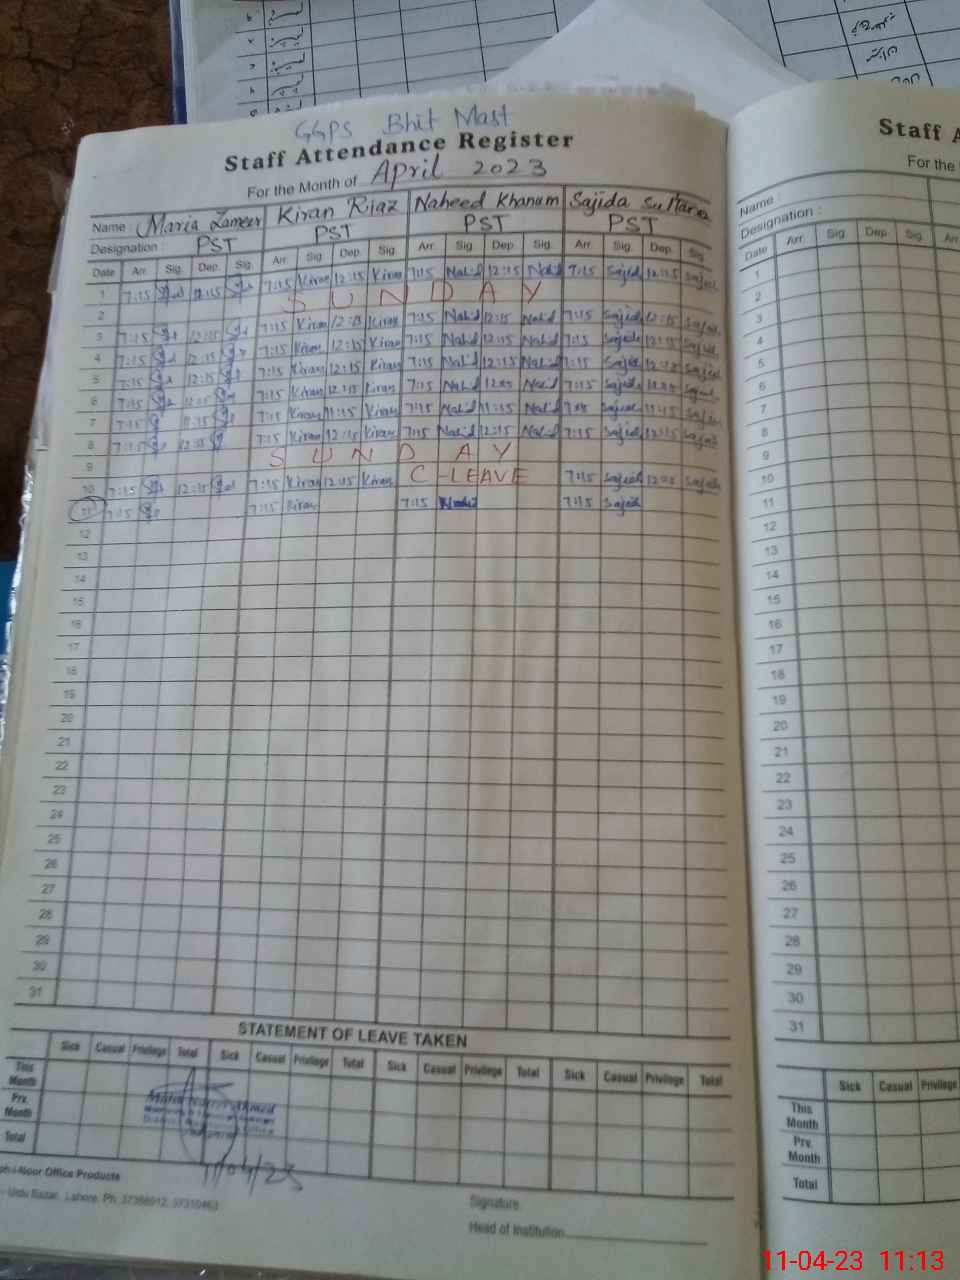 GGPS Bhit Mast
Staff Attendance Register
For the Month of April 2023
Name : Maria Zameer Kiran Riaz Naheed Khanum Sajida Sultana
Designation : PST PST PST PST
Date Arr. Sig. Dep. Sig. Arr. Sig. Dep. Sig. Arr. Sig. Dep. Sig. Arr. Sig. Dep. Sig.
1 7:15 12:15 7:15 Kiran 12:15 Kiran 7:15 Nah'd 12:15 Nah'd 7:15 Sajid 12:15 Sajid
2 SUNDAY
3 7:15 12:15 7:15 Kiran 12:15 Kiran 7:15 Nah'd 12:15 Nah'd 7:15 Sajid 12:15 Sajid
4 7:15 12:15 7:15 Kiran 12:15 Kiran 7:15 Nah'd 12:15 Nah'd 7:15 Sajid 12:15 Sajid
5 7:15 12:15 7:15 Kiran 12:15 Kiran 7:15 Nah'd 12:15 Nah'd 7:15 Sajid Sajid
6 7:15 7:15 Kiran Kiran 7:15 Nah'd Nah'd 7:15 Sajid Sajid
7 7:15 11:15 7:15 Kiran 11:15 Kiran 7:15 Nah'd 11:15 Nah'd Sajid 11:15 Sajid
8 7:15 12:15 7:15 Kiran 12:15 Kiran 7:15 Nah'd 12:15 Nah'd 7:15 Sajid 12:15 Sajid
9 SUNDAY
10 7:15 12:15 7:15 Kiran 12:15 Kiran C-LEAVE 7:15 Sajid Sajid
11 7:15 7:15 Kiran 7:15 7:15 Sajid
12
13
14
15
16
17
18
19
20
21
22
23
24
25
26
27
28
29
30
31
STATEMENT OF LEAVE TAKEN
Sick Casual Privilege Total Sick Casual Privilege Total Sick Casual Privilege Total Sick Casual Privilege Total
This Month
Prv. Month
Total
Office Products
Urdu Bazar, Lahore. Ph: 37310463
Signature
Head of Institution
Staff A
For the
Name :
Designation :
Date Arr. Sig. Dep. Sig. Arr
1
2
3
4
5
6
7
8
9
10
11
12
13
14
15
16
17
18
19
20
21
22
23
24
25
26
27
28
29
30
31
Sick Casual Privilege
This Month
Prv. Month
Total
11-04-23 11:13